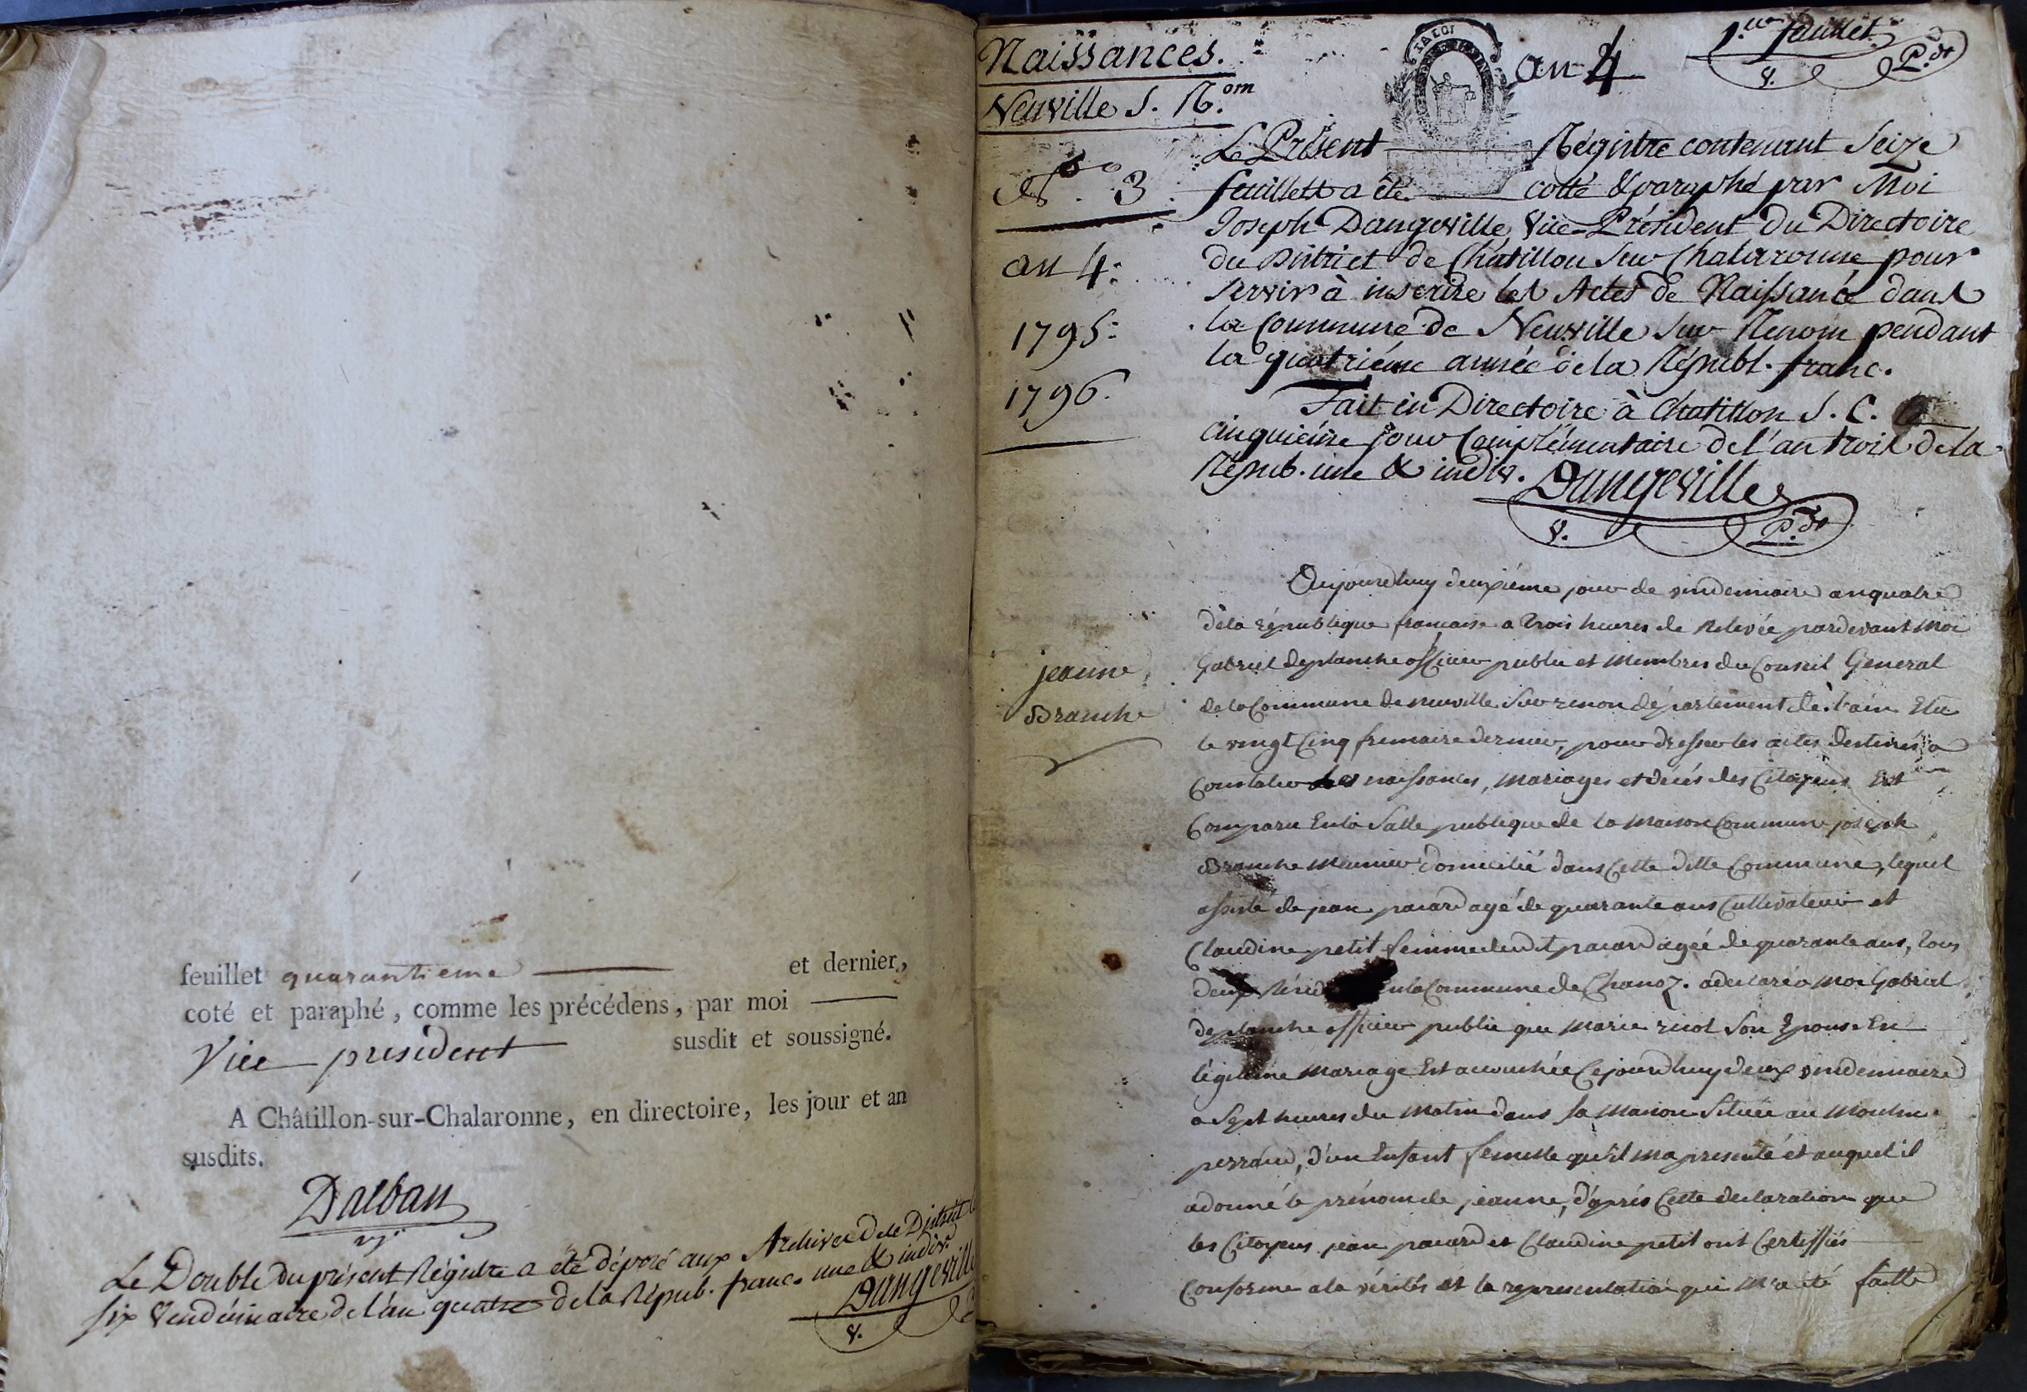 feuillet quarantieme et dernier,
coté et paraphé, comme les précédens, par moi
Vice president susdit et soussigné.
A Châtillon-sur-Chalaronne, en directoire, les jour et an
susdits.
Dalban
Le Double du présent Régistre a été déposé aux Archives de le District
six Vendémiaire de l'an quatre de la Répub. franc. une & indiv.
Dangeville
V.
Naissances.
Neuville S. R.om
N.o 3
an 4.
1795.
1796.
LA LOI
an 4
1.er feuillet
V. P.dt
Le Présent Régistre contenant Seize
feuillets a été cotté & paraphé par Moi
Joseph Dangeville Vice-Président du Directoire
du District de Châtillon sur Chalaronne pour
servir à inscrire les Actes de Naissance dans
la Commune de Neuville sur Renom pendant
la quatriéme année de la Républ. franc.
Fait en Directoire à Chatillon S. C.
cinquiéme jour Complémentaire de l'an trois de la
Répub. une & indiv.
Dangeville
V. P.dt
jeanne
Branche
Aujourdhuy deuxiéme jour de vindemiaire an quatre
de la république francaise a trois heures de relevée pardevant moi
Gabriel deplanche officier public et Membres du Conseil General
de la Commune de neuville Sur renon département de l'ain Elu
le vingt Cinq frimaire dernier, pour dresser les actes destinés a
Constater les naissances, mariages et decés des Citoyens Est
Comparu En la Salle publique de la maison Commune joseph
Branche Meunier domicilié dans Cette ditte Commune, lequel
assisté de jean pacard agé de quarante ans Cultivateur et
Claudine petit femme dudit pacard agée de quarante ans, tous
deux en la Commune de Chanoz. a declaré a Moi Gabriel
deplanche officier public que marie ricol Son Epouse En
légitime Mariage Est accouchée Cejourdhuy deux vindemiaire
a Sept heures du Matin dans Sa Maison Située au Moulin
perraud, d'un Enfant femelle qu'il ma presenté et auquel il
a donné le prénom de jeanne, d'aprés Cette declaration que
les Citoyens jean pacard et Claudine petit ont Certiffiés
Conforme a la vérités et la representation qui M'a été faitte